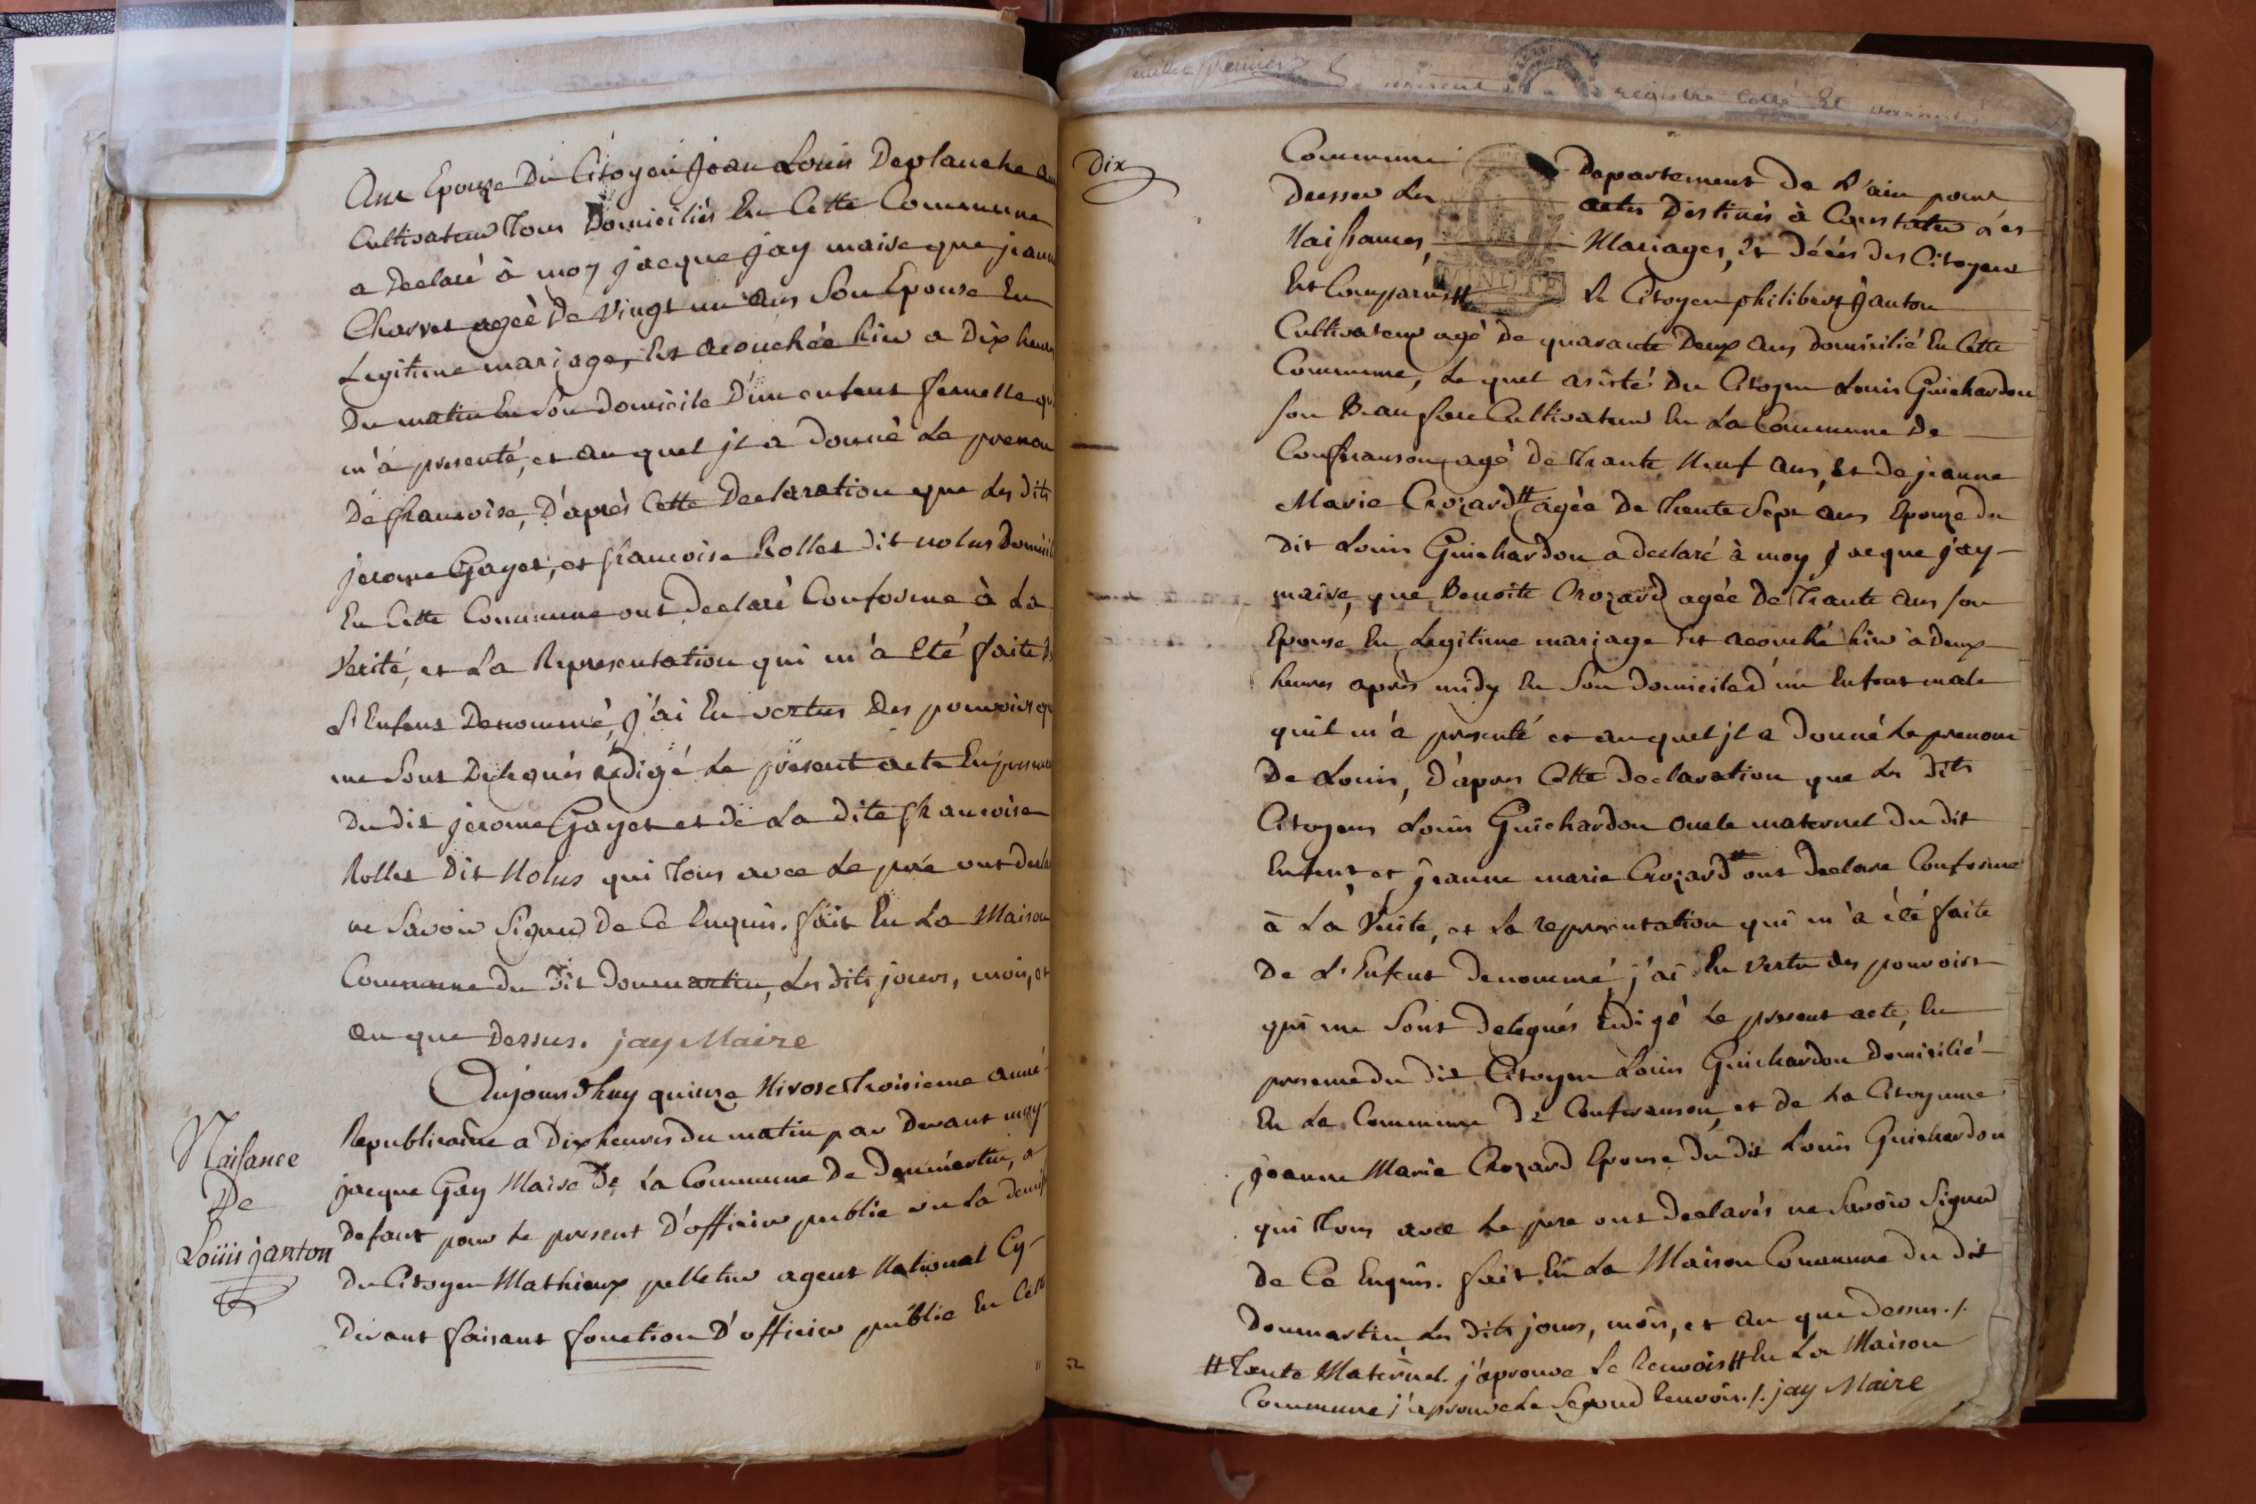 Ans Epouze Du Citoyen Jean Louis Deplanche
Cultivateur Tous Domiciliés En Cette Commune
a Declaré à moy jacque jay maire que jeann
Charvet agéé De Vingt un ans Son Epouse En
Legitime mariage, Est acouchée hier a Dix heures
Du matin En Son Domicile D'un enfant femelle qu
m'a presenté, et au quel jl a Donné Le prenom
De francoise, D'aprés Cette Declaration que Les dits
jerome Gayet, et francoise Rollet Dit nolus Domicil
En Cette Commune ont Declaré Conforme à La
Verité, et La Representation qui m'a Eté faite
L'Enfant Denommé, J'ai En vertus Des pouvoirs q
me Sont Delegués rédigé Le present acte En presence
Du dit jerome Gayet et de La dite francoise
Rollet Dit Nolus qui Tous avec Le pere ont decla
ne Savoir Signer De Ce Enquis. fait En La Maison
Commune du Dit Dommartin, Les dits jours, mois, et
an que Dessus. jay Maire
Naisance
De
Loüis janton
Aujourd'huy quinze Nivose Troisieme anné
Republicaine a Dix heures du matin, par Devant moy
jacque Gay Maire De La Commune De Dommartin, a
Defaut pour Le present D'officier public vu La demis
Du Citoyen Mathieux pelletier agent National Cy-
Devant faisant fonction D'officier public En Cette
Dix
Commune Departement De L'ain pour
dresser Les actes Destinés à Constater Les
Naissances, Mariages, Et Décés Des Citoyens
Est Comparus # Le Citoyen philibert Janton
Cultivateur agé De quarante Deux ans Domicilié En Cette
Commune, Le quel asisté Du Citoyen Louis Guichardon
Son Beau frere Cultivateur En La Commune De
Confranson, agé De Trante Neuf ans, Et De jeanne
Marie Crozard # agée De Trente Sept ans Epouze du
Dit Louis Guichardon a declaré à moy jacque jay
maire, que Benoite Crozard agée De Trante ans Son
Epouse En Legitime mariage Est acouché hier a Deux
heures aprés midy En Son Domicile d'un Enfant male
quil m'a presenté et au quel jl a Donné Le prenom
De Louis, D'apres Cette Declaration que Les dits
Citoyens Louis Guichardon oncle maternel du dit
Enfent, et jeanne marie Crozard # ont Declare Conforme
à La Verite, et La representation qui m'a été faite
De L'Enfent Denommé j'ai En Vertu des pouvoirs
qui me Sont Delegués redigé Le present acte, En
presence du dit Citoyen Louis Guichardon Domicilié
En La Commune De Confranson, et de La Citoyenne
Jeanne Marie Crozard Epouse Du dit Louis Guichardon
qui Tous avec Le pere ont Declarés ne Savoir Signer
De Ce Enquis. fait En La Maison Commune Du dit
Dommartin Les dits jours, mois, et an que Dessus ./.
# Tante Maternel. j'aprouve Le Renvois # En La Maison
Commune j'aprouve Le Segond Renvois ./. jay Maire